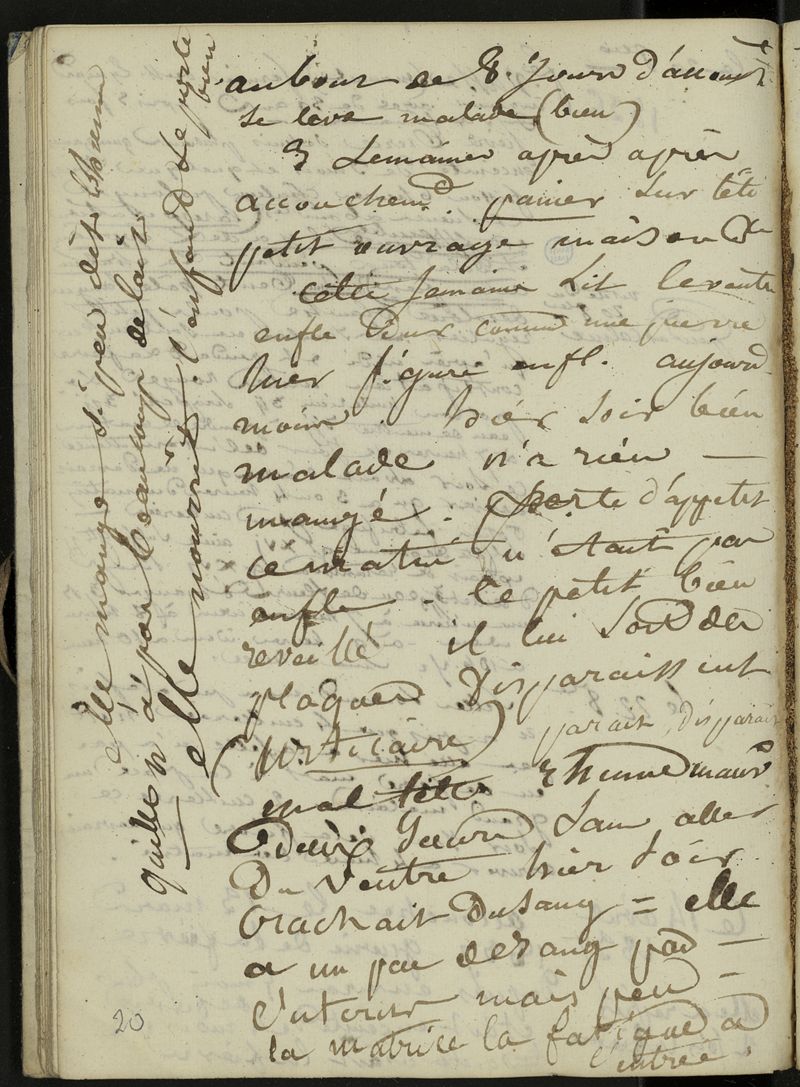 au bout de 8. Jours d'accouc
se leve malade (bien)
3 semaines après après
accouchem.t panier sur tête
petit ouvrage maison &c
cette semaine Lit le ventre
enfle Dur comme une pierre
hier figure enfl. aujourd
moins hier soir bien
malade n'a rien —
mangé. (perte d'appetit
ce matin n'etait pas
enfle - le petit bien
reveillé il lui sort des
plaques Disparaissent
(urticaire) parait, disparait
mal tête Rhume mauv
Deux Jours Sans aller
Du Ventre hier Soir
Crachait Du Sang = elle
a un peu de sang par —
l'uterus mais peu —
la matrice la fatigue a
l'entrée.
elle mange si peu
quelle n'a pas beaucoup de lait
elle nourrit. l'enfant se porte
bien
20